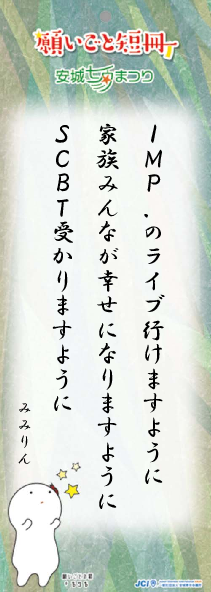 願いごと短冊
安城七夕まつり
IMP.のライブ行けますように
家族みんなが幸せになりますように
SCBT受かりますように
みみりん
願いごと短冊
JCI